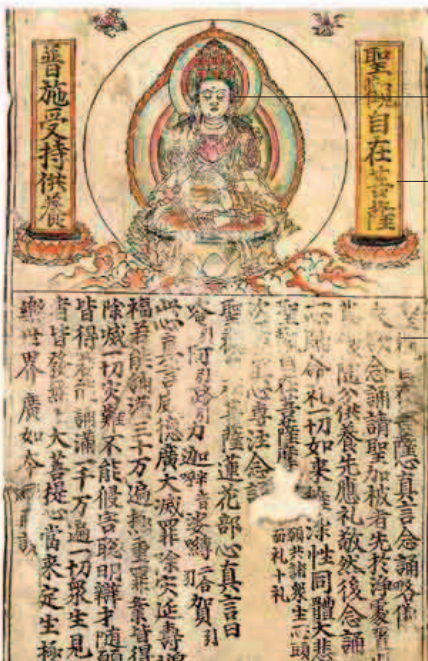 聖觀自在菩薩
普施受持供養
聖觀自在菩薩心真言念誦略儀
夫欲念誦請聖加被者先於淨處置
隨分供養先應礼敬然後念誦
歸命礼一切如來離染性同體大悲
聖觀自在菩薩摩
願共諸衆生一心頭
面礼十礼
次應至心專注念誦
聖觀自在菩薩蓮花部心真言曰
唵引阿引路引力迦半音娑嚩二合賀引
此心真言威德廣大滅罪除灾延壽增
福若能誦滿三十万遍極重罪業皆得
除滅一切灾難不能侵害聰明辯才隨願
皆得若能誦滿一千万遍一切衆生見
者皆發無上大菩提心當來定生極
樂世界廣如本說